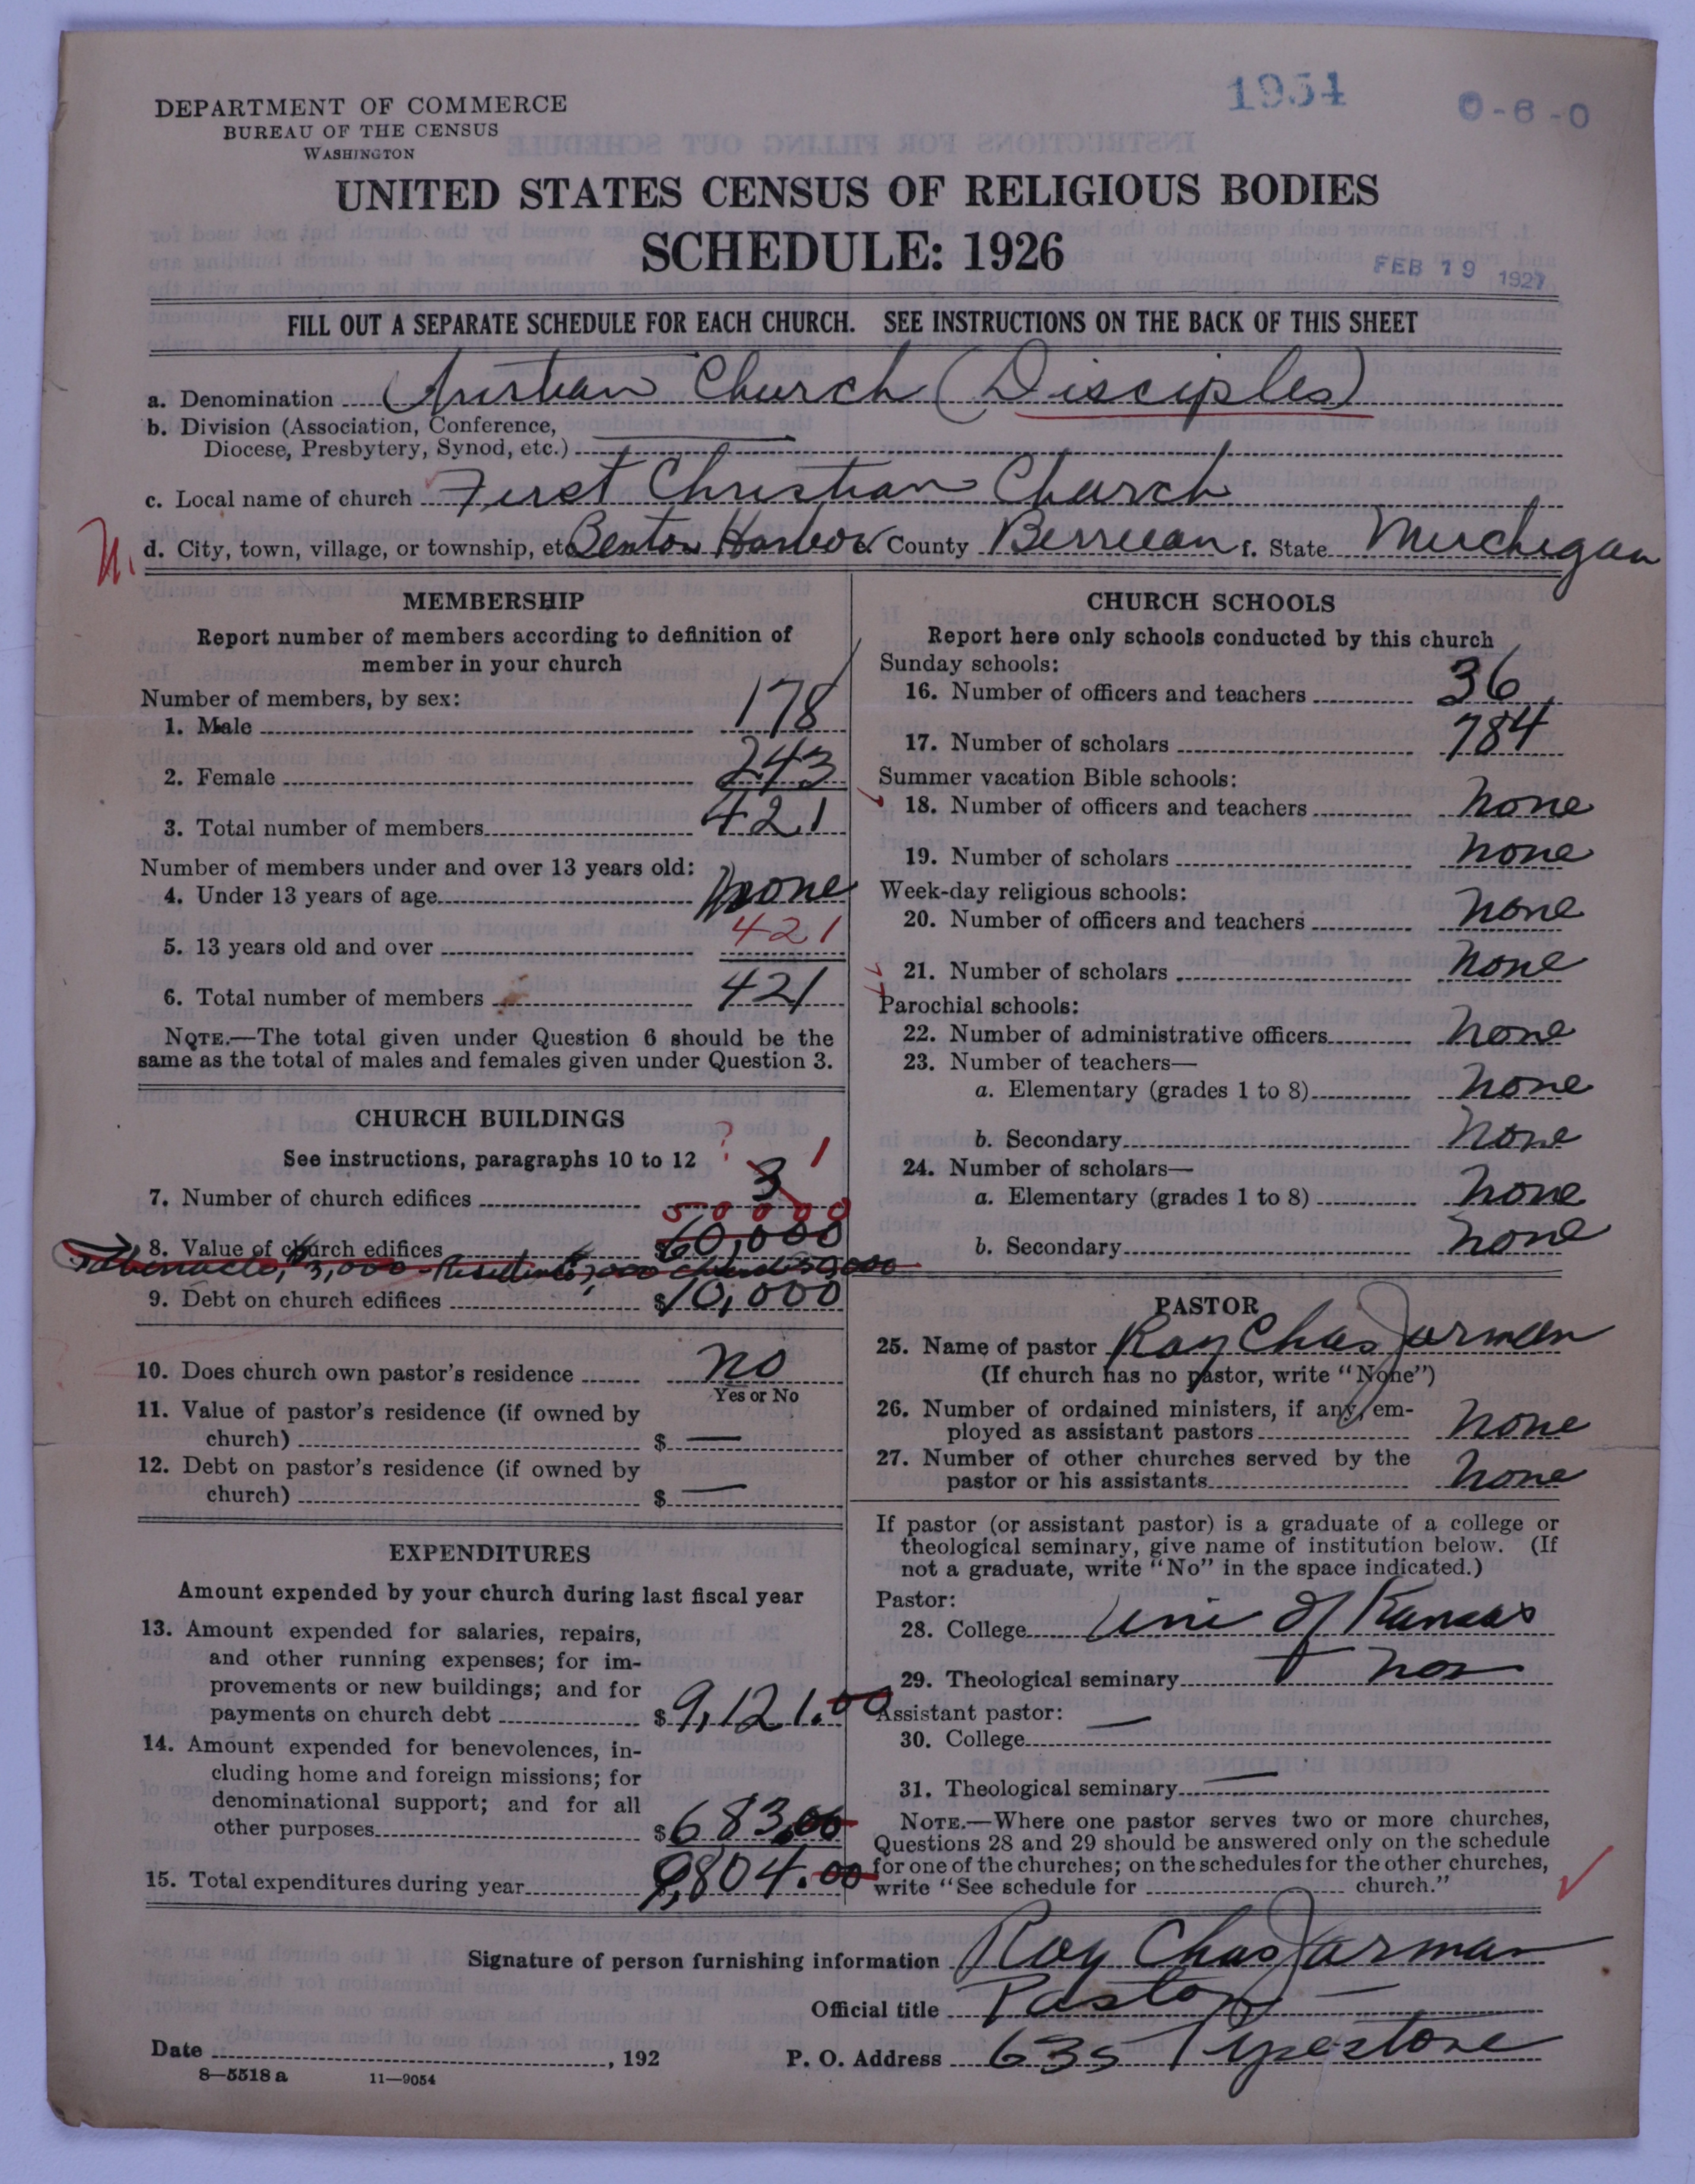 1954
0-6-0
DEPARTMENT OF COMMERCE
BUREAU OF THE CENSUS
WASHINGTON
UNITED STATES CENSUS OF RELIGIOUS BODIES
SCHEDULE: 1926
FEB 19 1927
FILL OUT A SEPARATE SCHEDULE FOR EACH CHURCH. SEE INSTRUCTIONS ON THE BACK OF THIS SHEET
a. Denomination Christian Church (Disciples)
b. Division (Association, Conference,
Diocese, Presbytery, Synod, etc.)
c. Local name of church First Christian Church
d. City, town, village, or township, etc Benton Harbor e. County Berriean f. State Michigan
MEMBERSHIP
Report number of members according to definition of
member in your church
Number of members, by sex:
1. Male 178
2. Female 243
3. Total number of members 421
Number of members under and over 13 years old:
4. Under 13 years of age none
5. 13 years old and over 421
6. Total number of members 421
NOTE.—The total given under Question 6 should be the
same as the total of males and females given under Question 3.
CHURCH BUILDINGS
See instructions, paragraphs 10 to 12 ?
7. Number of church edifices 3 1
50000
8. Value of church edifices $60,000
Tabernacle, 3,000 - Residence 7,000 Church 50,000
9. Debt on church edifices $10,000
10. Does church own pastor's residence no
Yes or No
11. Value of pastor's residence (if owned by
church) $ —
12. Debt on pastor's residence (if owned by
church) $ —
EXPENDITURES
Amount expended by your church during last fiscal year
13. Amount expended for salaries, repairs,
and other running expenses; for im-
provements or new buildings; and for
payments on church debt $9,121.00
14. Amount expended for benevolences, in-
cluding home and foreign missions; for
denominational support; and for all
other purposes $683.00
15. Total expenditures during year 9,804.00
CHURCH SCHOOLS
Report here only schools conducted by this church
Sunday schools:
16. Number of officers and teachers 36
17. Number of scholars 784
Summer vacation Bible schools:
18. Number of officers and teachers none
19. Number of scholars none
Week-day religious schools:
20. Number of officers and teachers none
21. Number of scholars none
Parochial schools:
22. Number of administrative officers none
23. Number of teachers—
a. Elementary (grades 1 to 8) none
b. Secondary none
24. Number of scholars—
a. Elementary (grades 1 to 8) none
b. Secondary none
PASTOR
25. Name of pastor Ray Chas Jarman
(If church has no pastor, write "None")
26. Number of ordained ministers, if any, em-
ployed as assistant pastors none
27. Number of other churches served by the
pastor or his assistants none
If pastor (or assistant pastor) is a graduate of a college or
theological seminary, give name of institution below. (If
not a graduate, write "No" in the space indicated.)
Pastor:
28. College Uni of Kansas
29. Theological seminary
Assistant pastor:
30. College —
31. Theological seminary —
NOTE.—Where one pastor serves two or more churches,
Questions 28 and 29 should be answered only on the schedule
for one of the churches; on the schedules for the other churches,
write "See schedule for church."
Signature of person furnishing information Ray Chas Jarman
Official title Pastor
Date , 192 P. O. Address 635 Pipestone
8—5518 a 11—9054